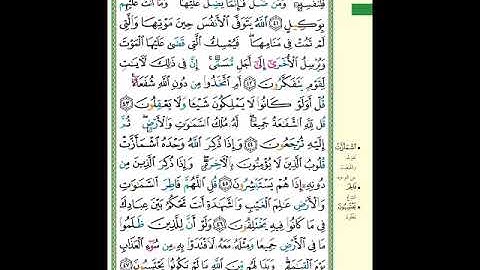 فَلِنَفْسِهِۦ ۖ وَمَن ضَلَّ فَإِنَّمَا يَضِلُّ عَلَيْهَا ۖ وَمَآ أَنتَ عَلَيْهِم
بِوَكِيلٍ ﴿٤١﴾ ٱللَّهُ يَتَوَفَّى ٱلْأَنفُسَ حِينَ مَوْتِهَا وَٱلَّتِى
لَمْ تَمُتْ فِى مَنَامِهَا ۖ فَيُمْسِكُ ٱلَّتِى قَضَىٰ عَلَيْهَا ٱلْمَوْتَ
وَيُرْسِلُ ٱلْأُخْرَىٰٓ إِلَىٰٓ أَجَلٍ مُّسَمًّى ۚ إِنَّ فِى ذَٰلِكَ لَـَٔايَـٰتٍ
لِّقَوْمٍ يَتَفَكَّرُونَ ﴿٤٢﴾ أَمِ ٱتَّخَذُوا۟ مِن دُونِ ٱللَّهِ شُفَعَآءَ ۚ
قُلْ أَوَلَوْ كَانُوا۟ لَا يَمْلِكُونَ شَيْـًٔا وَلَا يَعْقِلُونَ ﴿٤٣﴾
قُل لِّلَّهِ ٱلشَّفَـٰعَةُ جَمِيعًا ۖ لَّهُۥ مُلْكُ ٱلسَّمَـٰوَٰتِ وَٱلْأَرْضِ ۖ ثُمَّ
إِلَيْهِ تُرْجَعُونَ ﴿٤٤﴾ وَإِذَا ذُكِرَ ٱللَّهُ وَحْدَهُ ٱشْمَأَزَّتْ
قُلُوبُ ٱلَّذِينَ لَا يُؤْمِنُونَ بِٱلْـَٔاخِرَةِ ۖ وَإِذَا ذُكِرَ ٱلَّذِينَ مِن
دُونِهِۦٓ إِذَا هُمْ يَسْتَبْشِرُونَ ﴿٤٥﴾ قُلِ ٱللَّهُمَّ فَاطِرَ ٱلسَّمَـٰوَٰتِ
وَٱلْأَرْضِ عَـٰلِمَ ٱلْغَيْبِ وَٱلشَّهَـٰدَةِ أَنتَ تَحْكُمُ بَيْنَ عِبَادِكَ
فِى مَا كَانُوا۟ فِيهِ يَخْتَلِفُونَ ﴿٤٦﴾ وَلَوْ أَنَّ لِلَّذِينَ ظَلَمُوا۟
مَا فِى ٱلْأَرْضِ جَمِيعًا وَمِثْلَهُۥ مَعَهُۥ لَٱفْتَدَوْا۟ بِهِۦ مِن سُوٓءِ ٱلْعَذَابِ
يَوْمَ ٱلْقِيَـٰمَةِ ۚ وَبَدَا لَهُم مِّنَ ٱللَّهِ مَا لَمْ يَكُونُوا۟ يَحْتَسِبُونَ ﴿٤٧﴾
ٱشْمَأَزَّتْ
فَاطِرَ
يَحْتَسِبُونَ